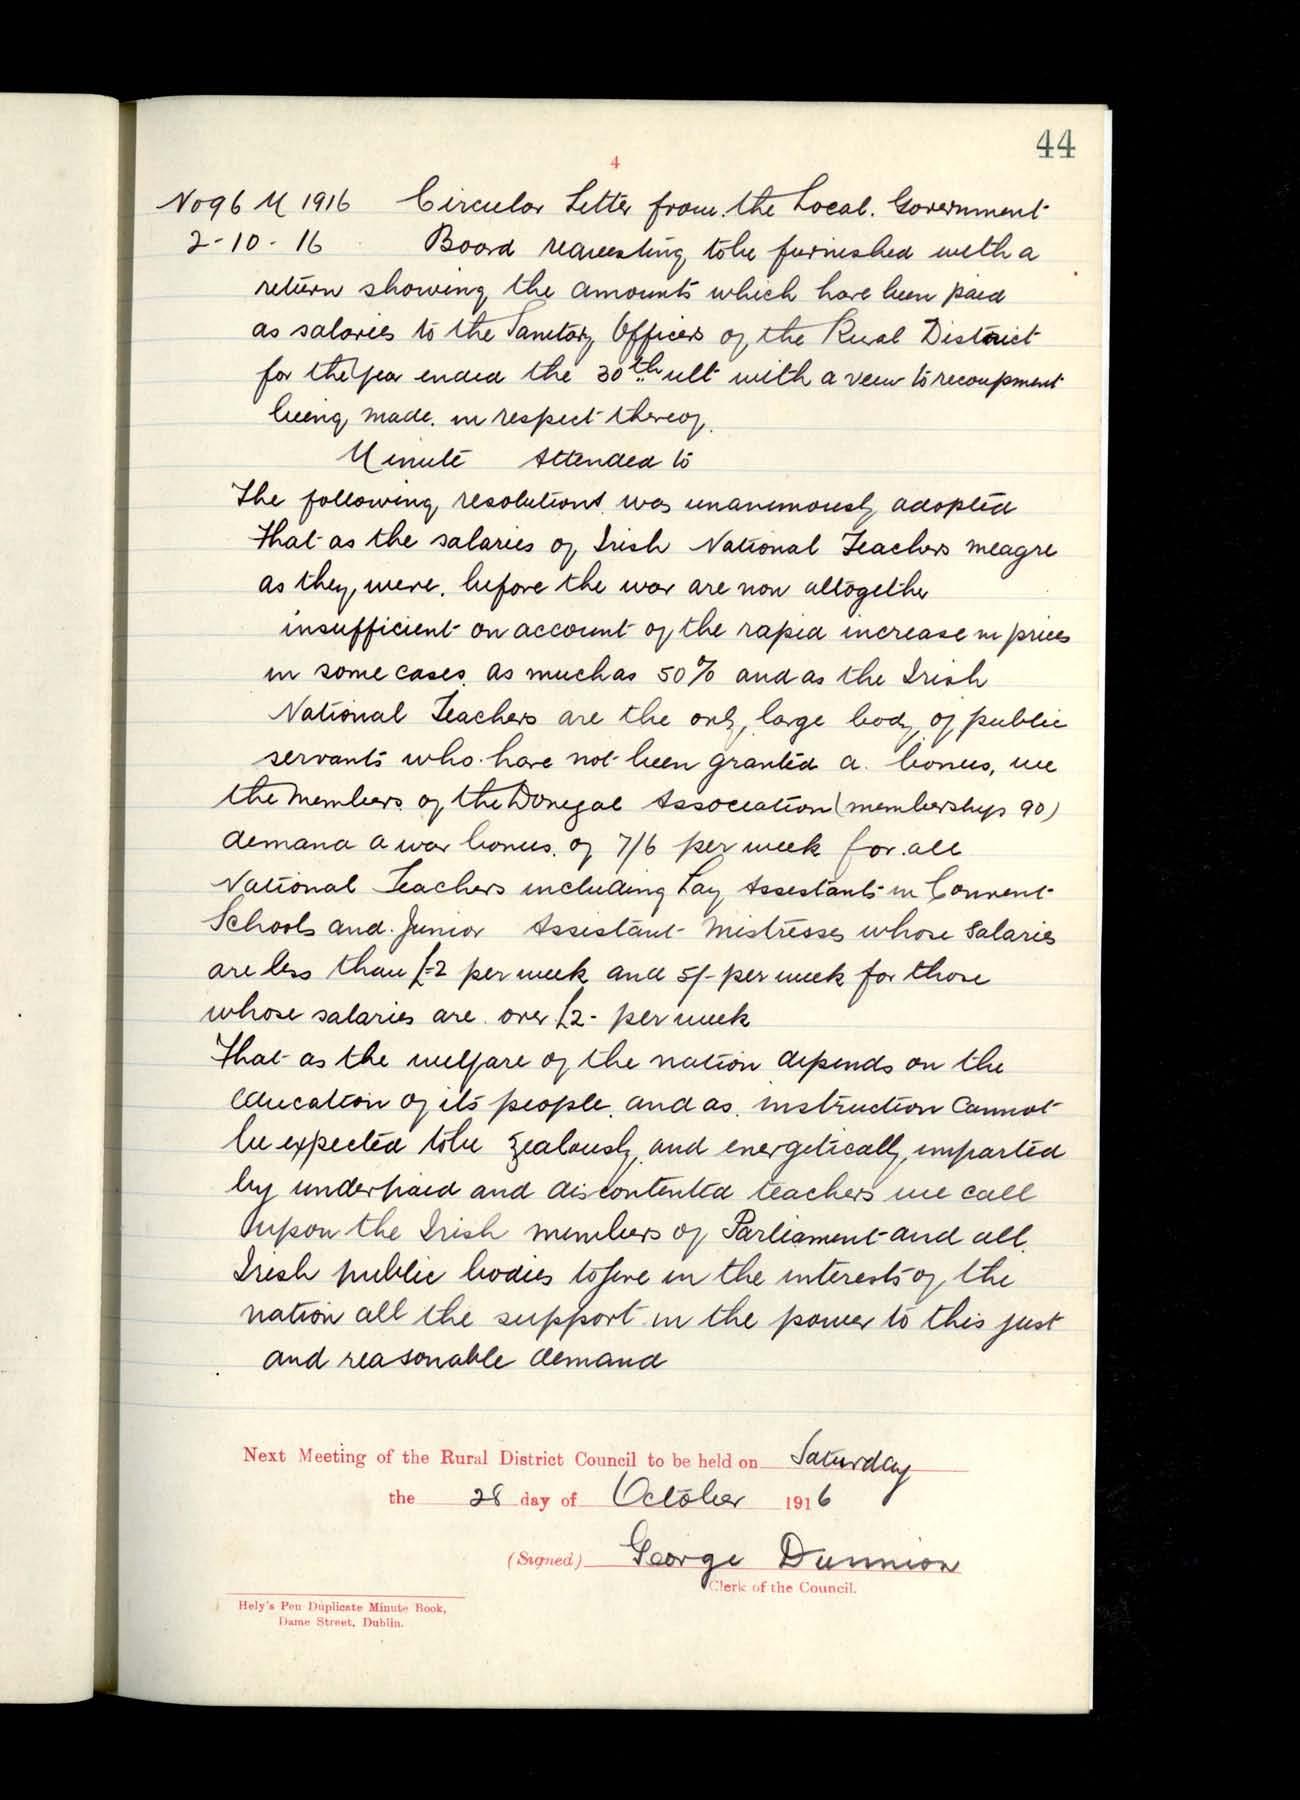 44
4
No 96 M 1916 Circular Letter from the Local Government
2-10-16 Board requesting to be furnished with a
return showing the amounts which have been paid
as salaries to the Sanitary Officers of the Rural District
for the year ended the 30th ult with a veiw to recoupment
being made in respect thereof.
Minute Attended to
The following resolutions was unanimously adopted
That as the salaries of Irish National Teachers meagre
as they were before the war are now altogether
insufficient on account of the rapid increase in prices
in some cases as much as 50% and as the Irish
National Teachers are the only large body of public
servants who have not been granted a bonus, we
the members of the Donegal Association (membership 90)
demand a war bonus of 7/6 per week for all
National Teachers including Lay Assistants in Convent
Schools and Junior Assistant Mistresses whose Salaries
are less than £2 per week and 5/- per week for those
whose salaries are over £2- per week
That as the welfare of the nation depends on the
education of its people and as instruction cannot
be expected to be zealously and energetically imparted
by underpaid and discontented teachers we call
upon the Irish members of Parliament and all
Irish public bodies to give in the interests of the
nation all the support in the power to this just
and reasonable demand
Next Meeting of the Rural District Council to be held on Saturday
the 28 day of October 1916
(Signed) George Dunnion
Clerk of the Council.
Hely's Pen Duplicate Minute Book,
Dame Street, Dublin.